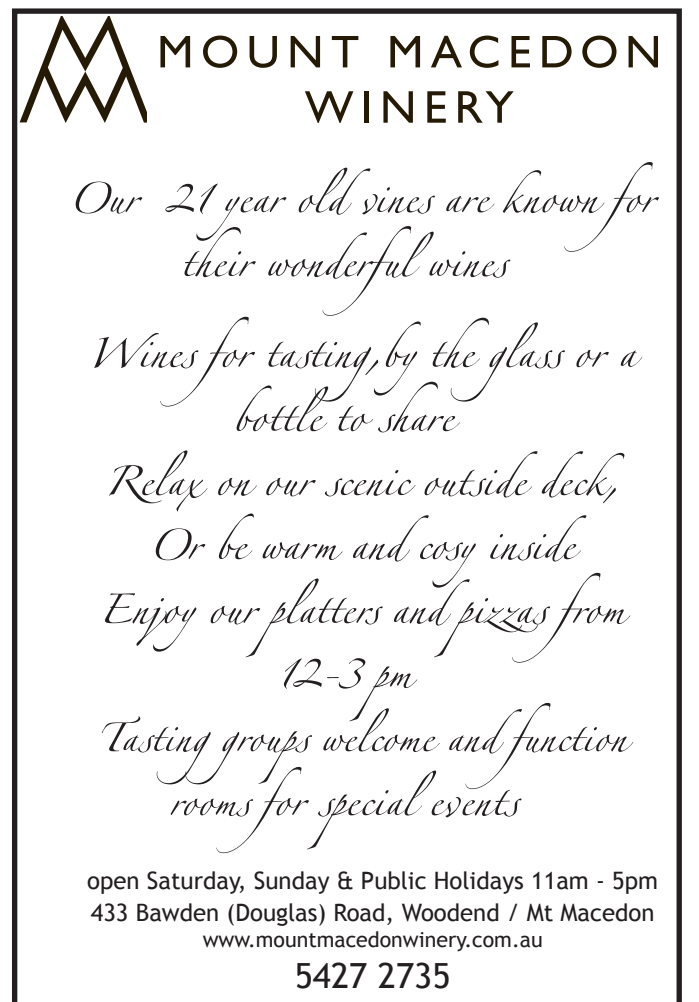 MOUNT MACEDON
WINERY
Our 21 year old vines are known for
their wonderful wines
Wines for tasting, by the glass or a
bottle to share
Relax on our scenic outside deck,
Or be warm and cosy inside
Enjoy our platters and pizzas from
12-3 pm
Tasting groups welcome and function
rooms for special events
open Saturday, Sunday & Public Holidays 11am - 5pm
433 Bawden (Douglas) Road, Woodend / Mt Macedon
www.mountmacedonwinery.com.au
5427 2735